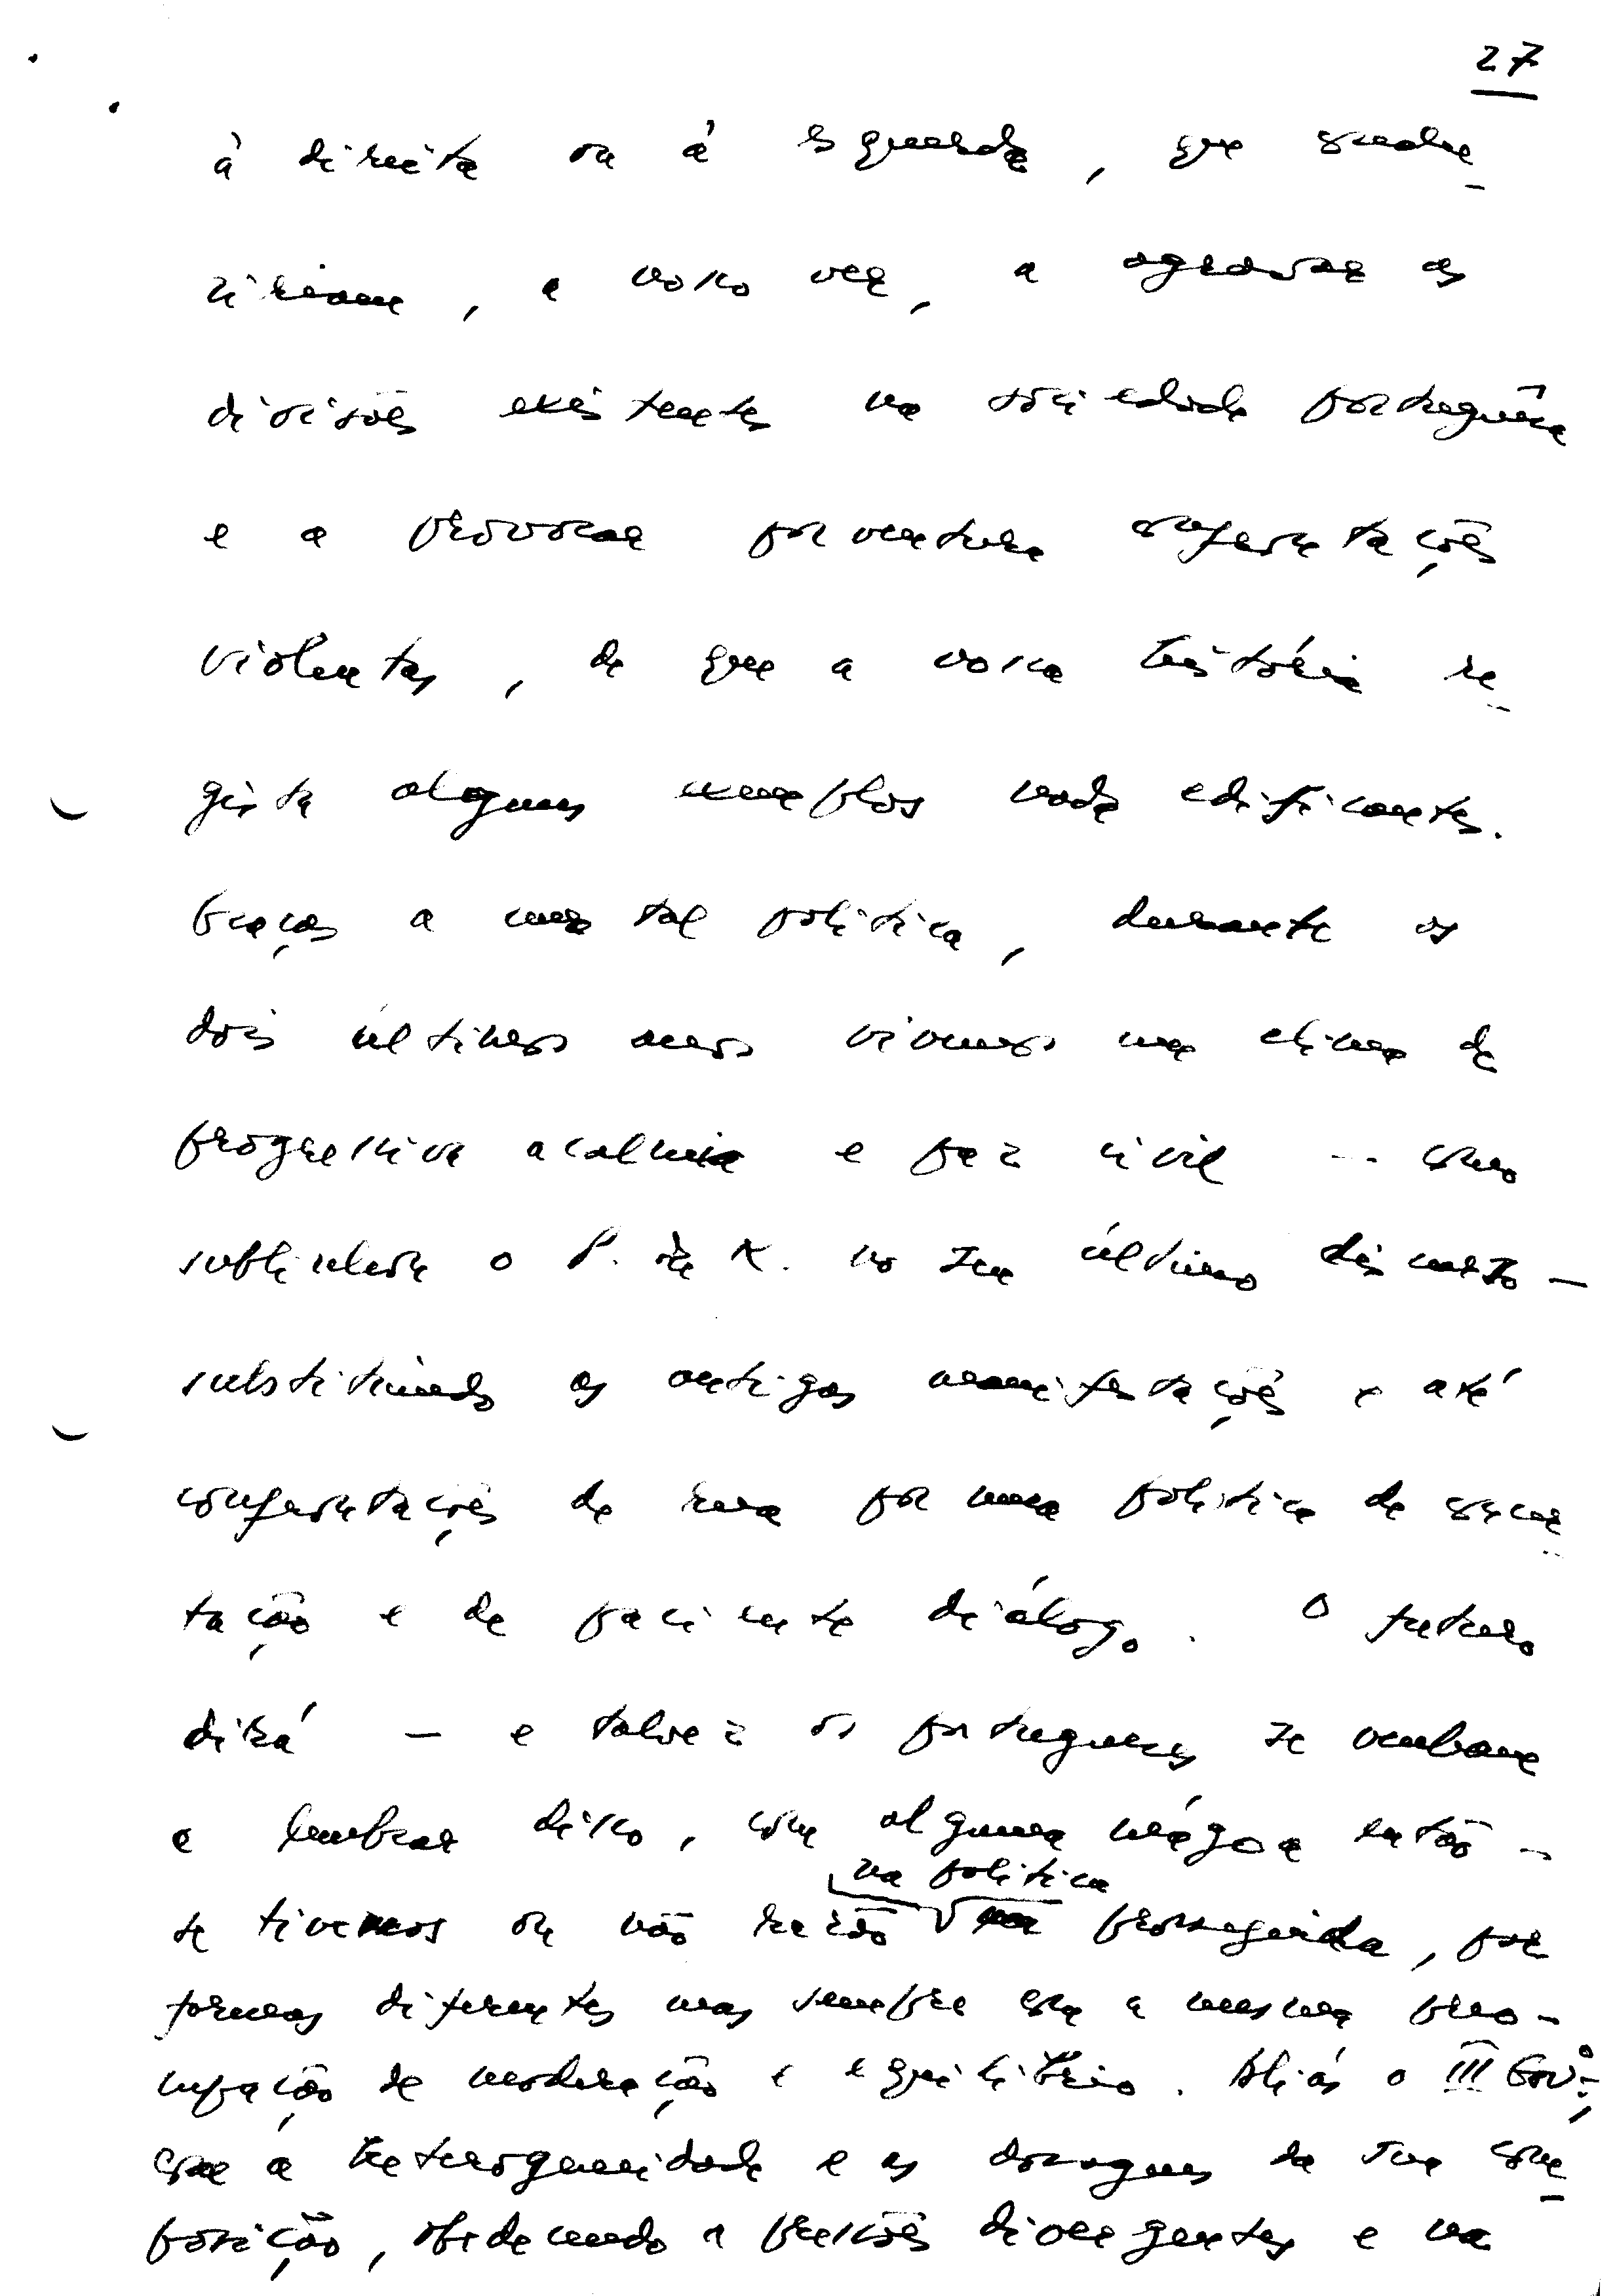 27
à direita ou à esquerda, que condu-
ziriam, a nosso ver, a agravar as
divisões existentes na sociedade portuguesa
e a provocar porventura confrontações
violentas, de que a nossa história re-
gista alguns exemplos nada edificantes.
Graças a uma tal política, durante os
dois últimos anos vivemos um clima de
progressiva acalmia e paz civil — como
sublinhou o P. da R. no seu último discurso —
substituindo as antigas manifestações e até
confrontações de rua por uma política de concer-
tação e de paciente diálogo. O futuro
dirá — e talvez os portugueses se venham
a lembrar disso, com alguma mágoa então —
na política
se tivemos ou não razão prosseguida, por
formas diferentes mas sempre com a mesma preo-
cupação de moderação e equilíbrio. Aliás o III Gov.º,
com a heterogeneidade e as dosagens da sua com-
posição, obedecendo a pressões divergentes e na